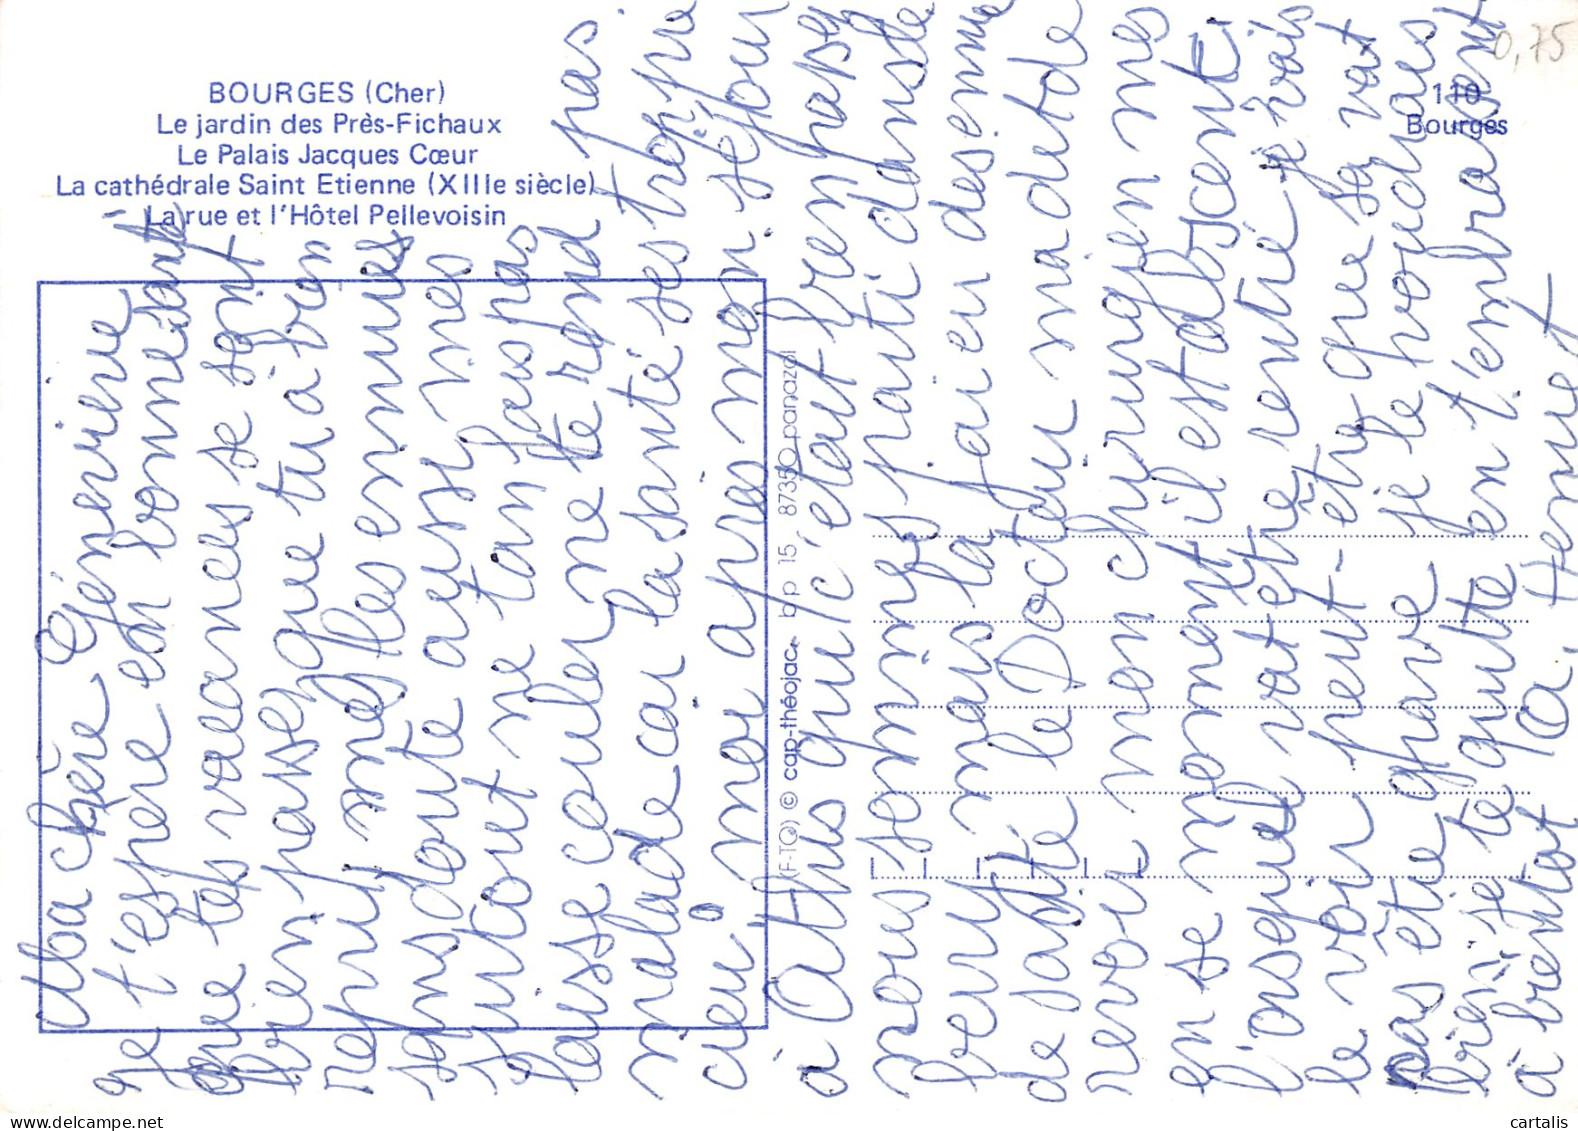 BOURGES (Cher)
Le jardin des Près-Fichaux
Le Palais Jacques Cœur
La cathédrale Saint Etienne (XIIIe siècle)
La rue et l'Hôtel Pellevoisin
110
Bourges
0,75
(F-TO) © cap-théojac bp 15, 87350 panazol
Ma chère Génevieve
je t'espère en bonne santé
que tes vacances se sont
bien passer que tu à bien
repris, mes
sans doute aussy mes
surtout ne tan fais pas
laisse couler ne te rend pas
malade car la santé ses trop pré
cieu, moi apres mon séjour
à Athis qui c'étaut bien passer
nous sommes parti dans le
berry mais la jai eu des ennui
de santé le Docteur ma dit de
revoir mon chirurgien mes
en se moment il est abscent.
l'orsquel vat être rentré je vais
le voir peut-être que sa vat
pas être grave je le voudrais
bien je te quitte en t'embrassant
à bientot